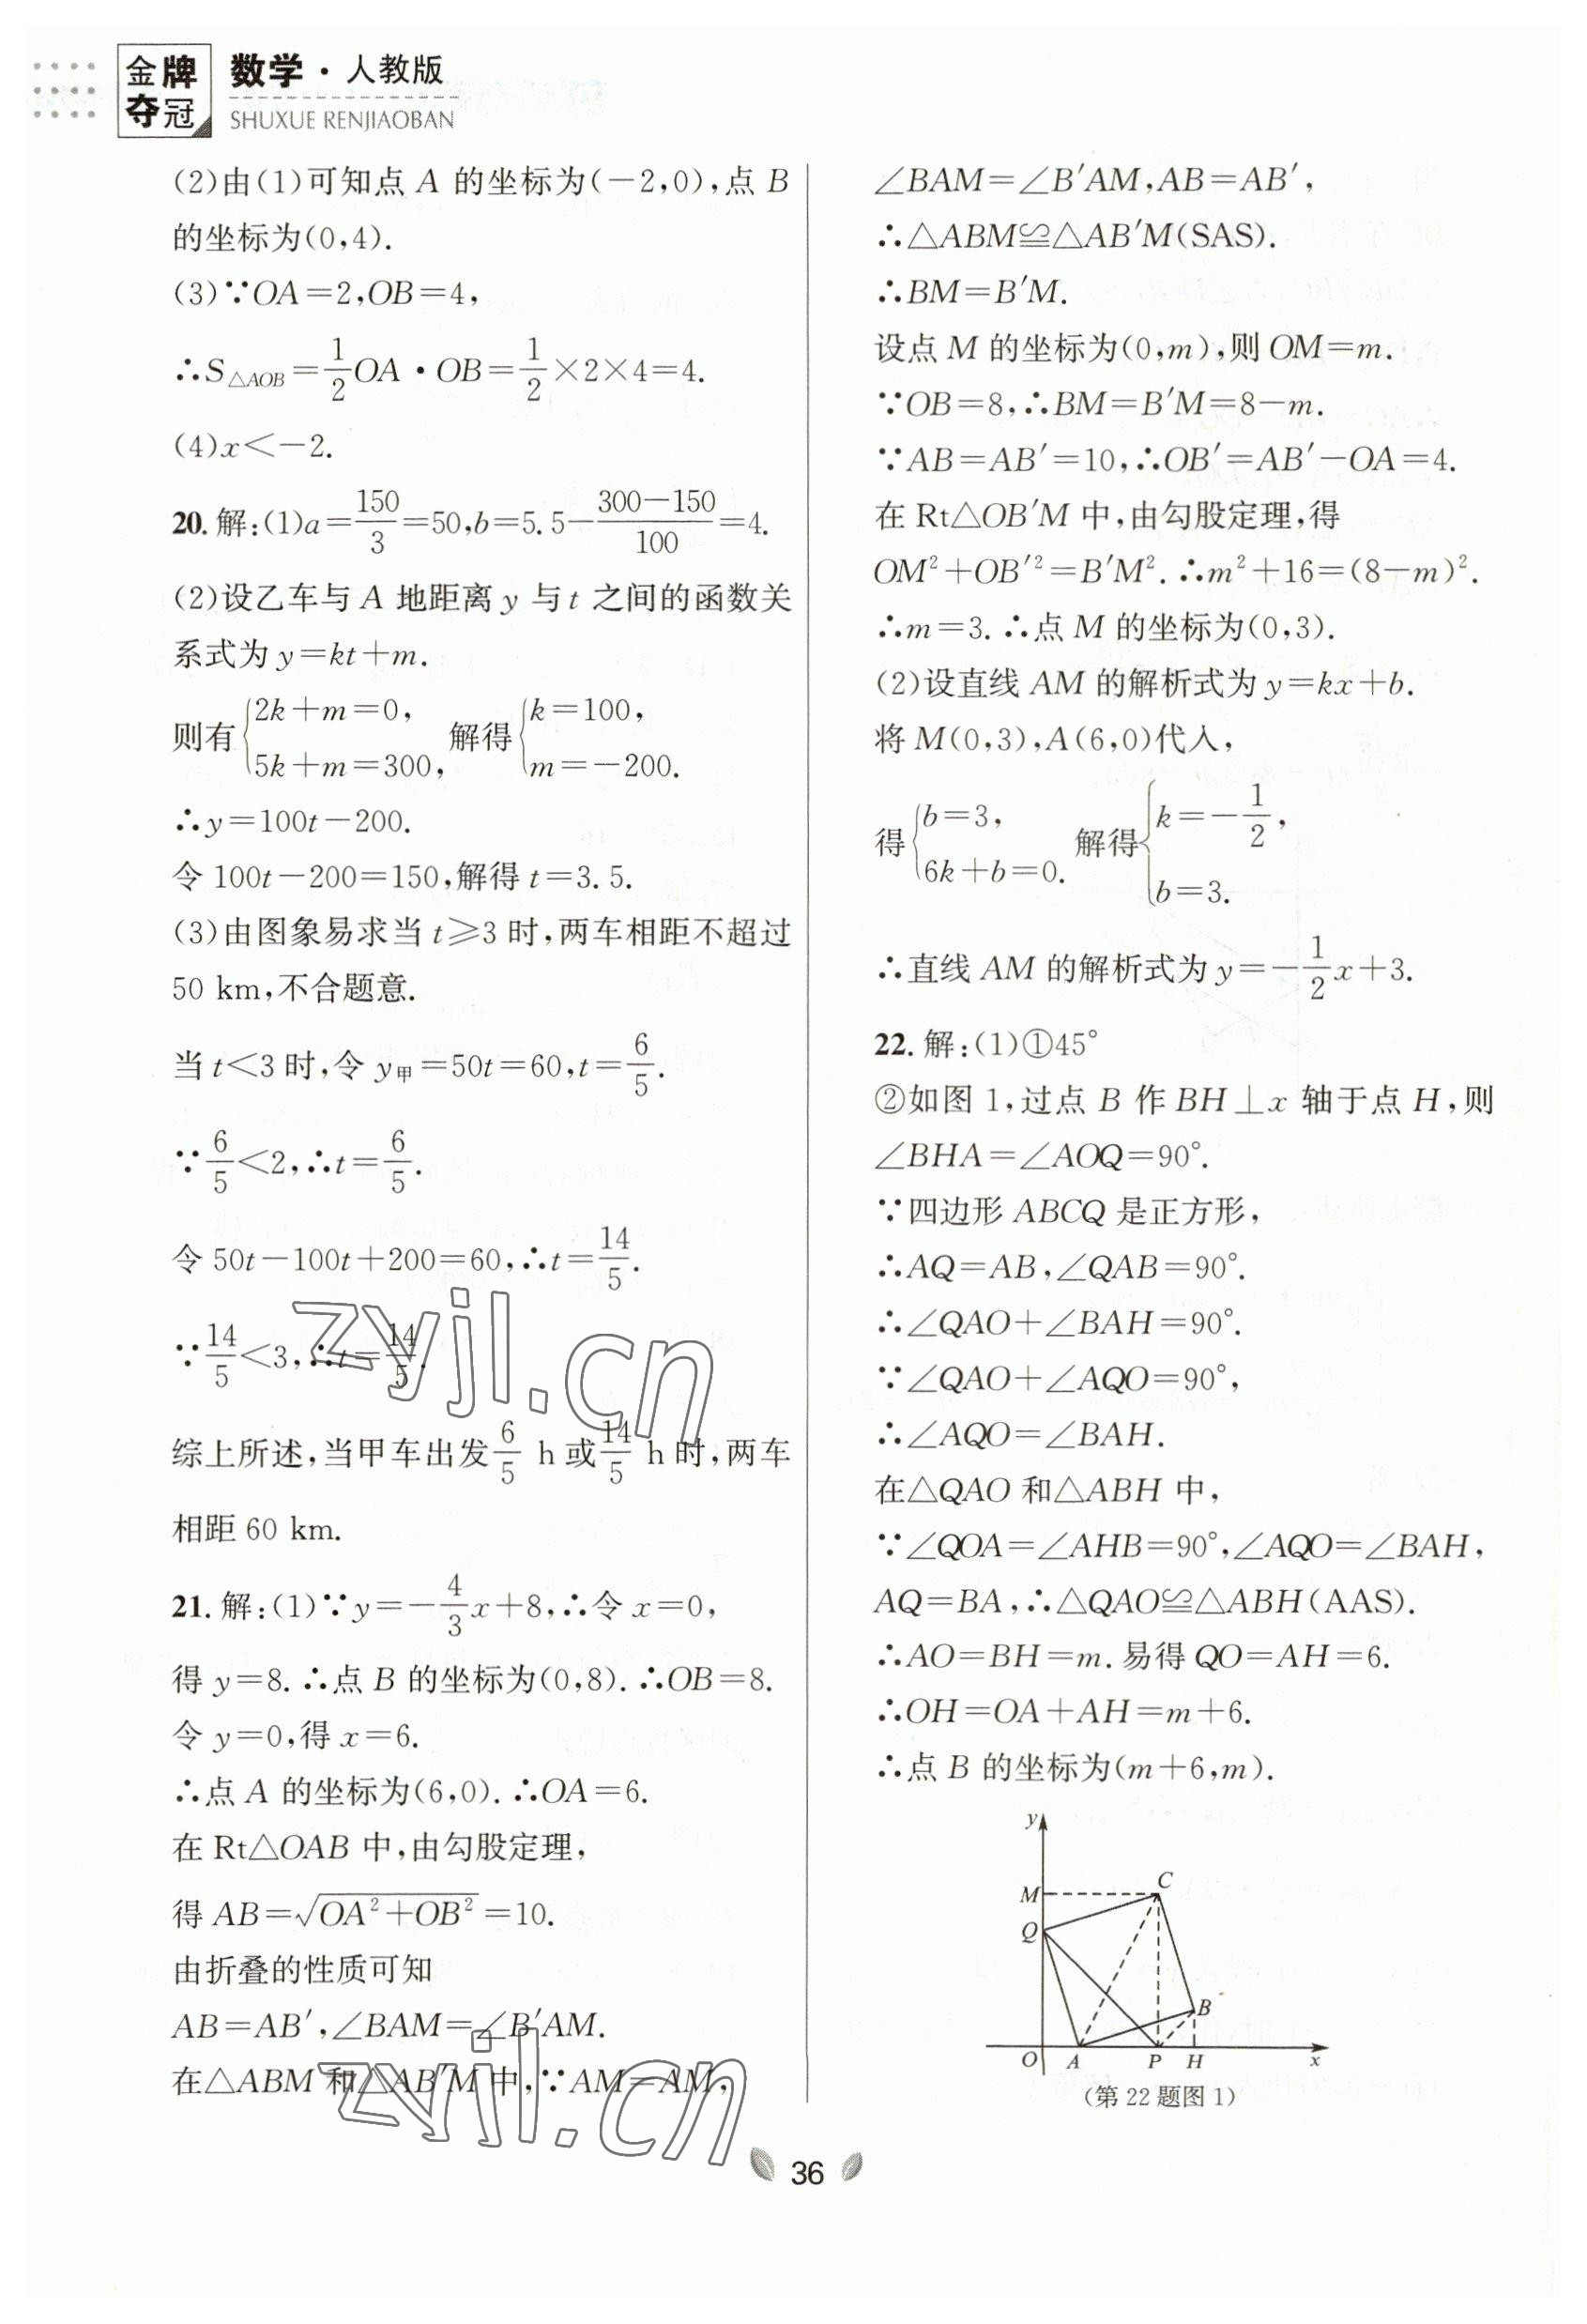 金牌夺冠
数学·人教版
SHUXUE RENJIAOBAN
(2)由(1)可知点 A 的坐标为(-2,0),点 B
的坐标为(0,4).
(3)∵OA=2,OB=4,
∴S△AOB=1/2 OA·OB=1/2×2×4=4.
(4)x<-2.
20.解:(1)a=150/3=50,b=5.5-(300-150)/100=4.
(2)设乙车与 A 地距离 y 与 t 之间的函数关
系式为 y=kt+m.
则有{2k+m=0, 5k+m=300, 解得{k=100, m=-200.
∴y=100t-200.
令 100t-200=150,解得 t=3.5.
(3)由图象易求当 t≥3 时,两车相距不超过
50 km,不合题意.
当 t<3 时,令 y甲=50t=60,t=6/5.
∵6/5<2,∴t=6/5.
令 50t-100t+200=60,∴t=14/5.
∵14/5<3,∴t=14/5.
综上所述,当甲车出发 6/5 h 或 14/5 h 时,两车
相距 60 km.
21.解:(1)∵y=-4/3 x+8,∴令 x=0,
得 y=8.∴点 B 的坐标为(0,8).∴OB=8.
令 y=0,得 x=6.
∴点 A 的坐标为(6,0).∴OA=6.
在 Rt△OAB 中,由勾股定理,
得 AB=√(OA²+OB²)=10.
由折叠的性质可知
AB=AB′,∠BAM=∠B′AM.
在△ABM 和△AB′M 中,∵AM=AM,
∠BAM=∠B′AM,AB=AB′,
∴△ABM≌△AB′M(SAS).
∴BM=B′M.
设点 M 的坐标为(0,m),则 OM=m.
∵OB=8,∴BM=B′M=8-m.
∵AB=AB′=10,∴OB′=AB′-OA=4.
在 Rt△OB′M 中,由勾股定理,得
OM²+OB′²=B′M².∴m²+16=(8-m)².
∴m=3.∴点 M 的坐标为(0,3).
(2)设直线 AM 的解析式为 y=kx+b.
将 M(0,3),A(6,0)代入,
得{b=3, 6k+b=0. 解得{k=-1/2, b=3.
∴直线 AM 的解析式为 y=-1/2 x+3.
22.解:(1)①45°
②如图 1,过点 B 作 BH⊥x 轴于点 H,则
∠BHA=∠AOQ=90°.
∵四边形 ABCQ 是正方形,
∴AQ=AB,∠QAB=90°.
∴∠QAO+∠BAH=90°.
∵∠QAO+∠AQO=90°,
∴∠AQO=∠BAH.
在△QAO 和△ABH 中,
∵∠QOA=∠AHB=90°,∠AQO=∠BAH,
AQ=BA,∴△QAO≌△ABH(AAS).
∴AO=BH=m.易得 QO=AH=6.
∴OH=OA+AH=m+6.
∴点 B 的坐标为(m+6,m).
y
M C
Q
B
O A P H x
(第 22 题图 1)
zyjl.cn
zyjl.cn
36